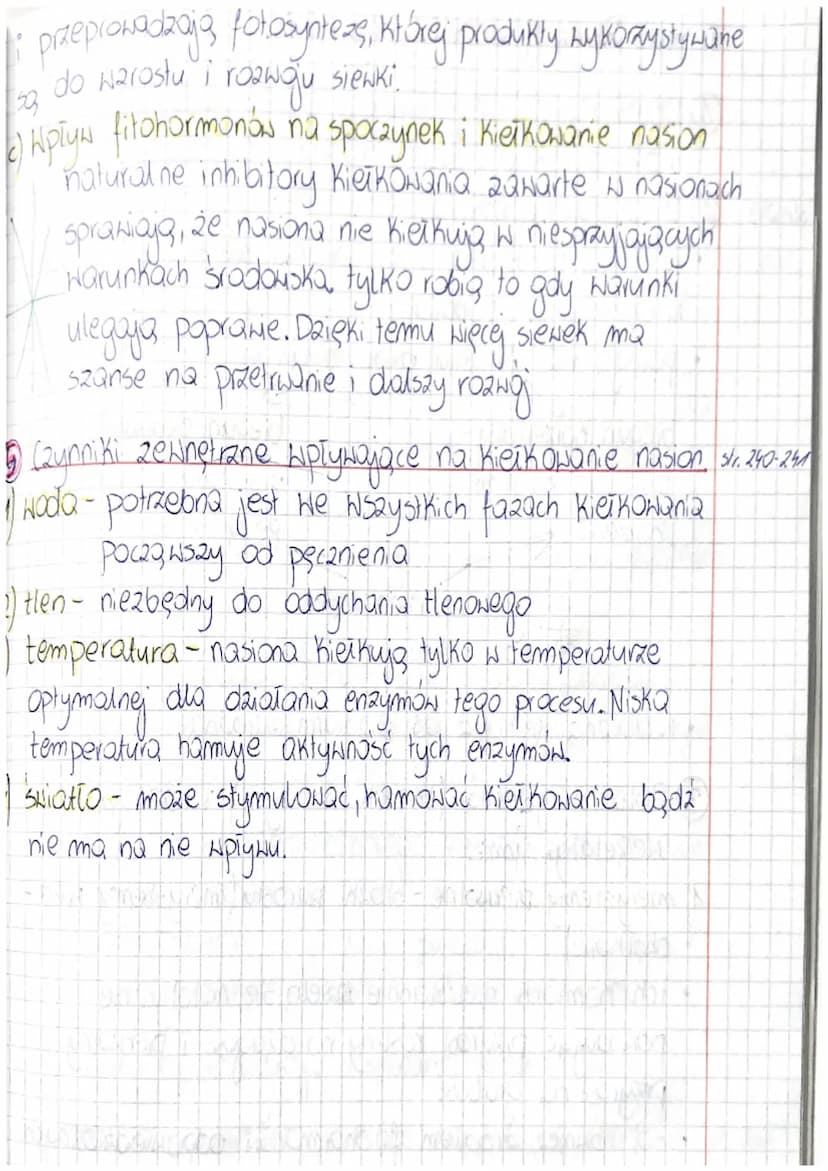 i przeprowadzają fotosyntezę, której produkty wykorzystywane
są do wzrostu i rozwoju siewki.
c) Wpływ fitohormonów na spoczynek i kiełkowanie nasion
naturalne inhibitory kiełkowania zawarte w nasionach
sprawiają, że nasiona nie kiełkują w niesprzyjających
warunkach środowiska, tylko robią to gdy warunki
ulegają poprawie. Dzięki temu więcej siewek ma
szanse na przetrwanie i dalszy rozwój
5 Czynniki zewnętrzne wpływające na kiełkowanie nasion str. 240-241
1) woda - potrzebna jest we wszystkich fazach kiełkowania
począwszy od pęcznienia
2) tlen - niezbędny do oddychania tlenowego
) temperatura - nasiona kiełkują tylko w temperaturze
optymalnej dla działania enzymów tego procesu. Niska
temperatura hamuje aktywność tych enzymów.
) światło - może stymulować, hamować kiełkowanie bądź
nie ma na nie wpływu.